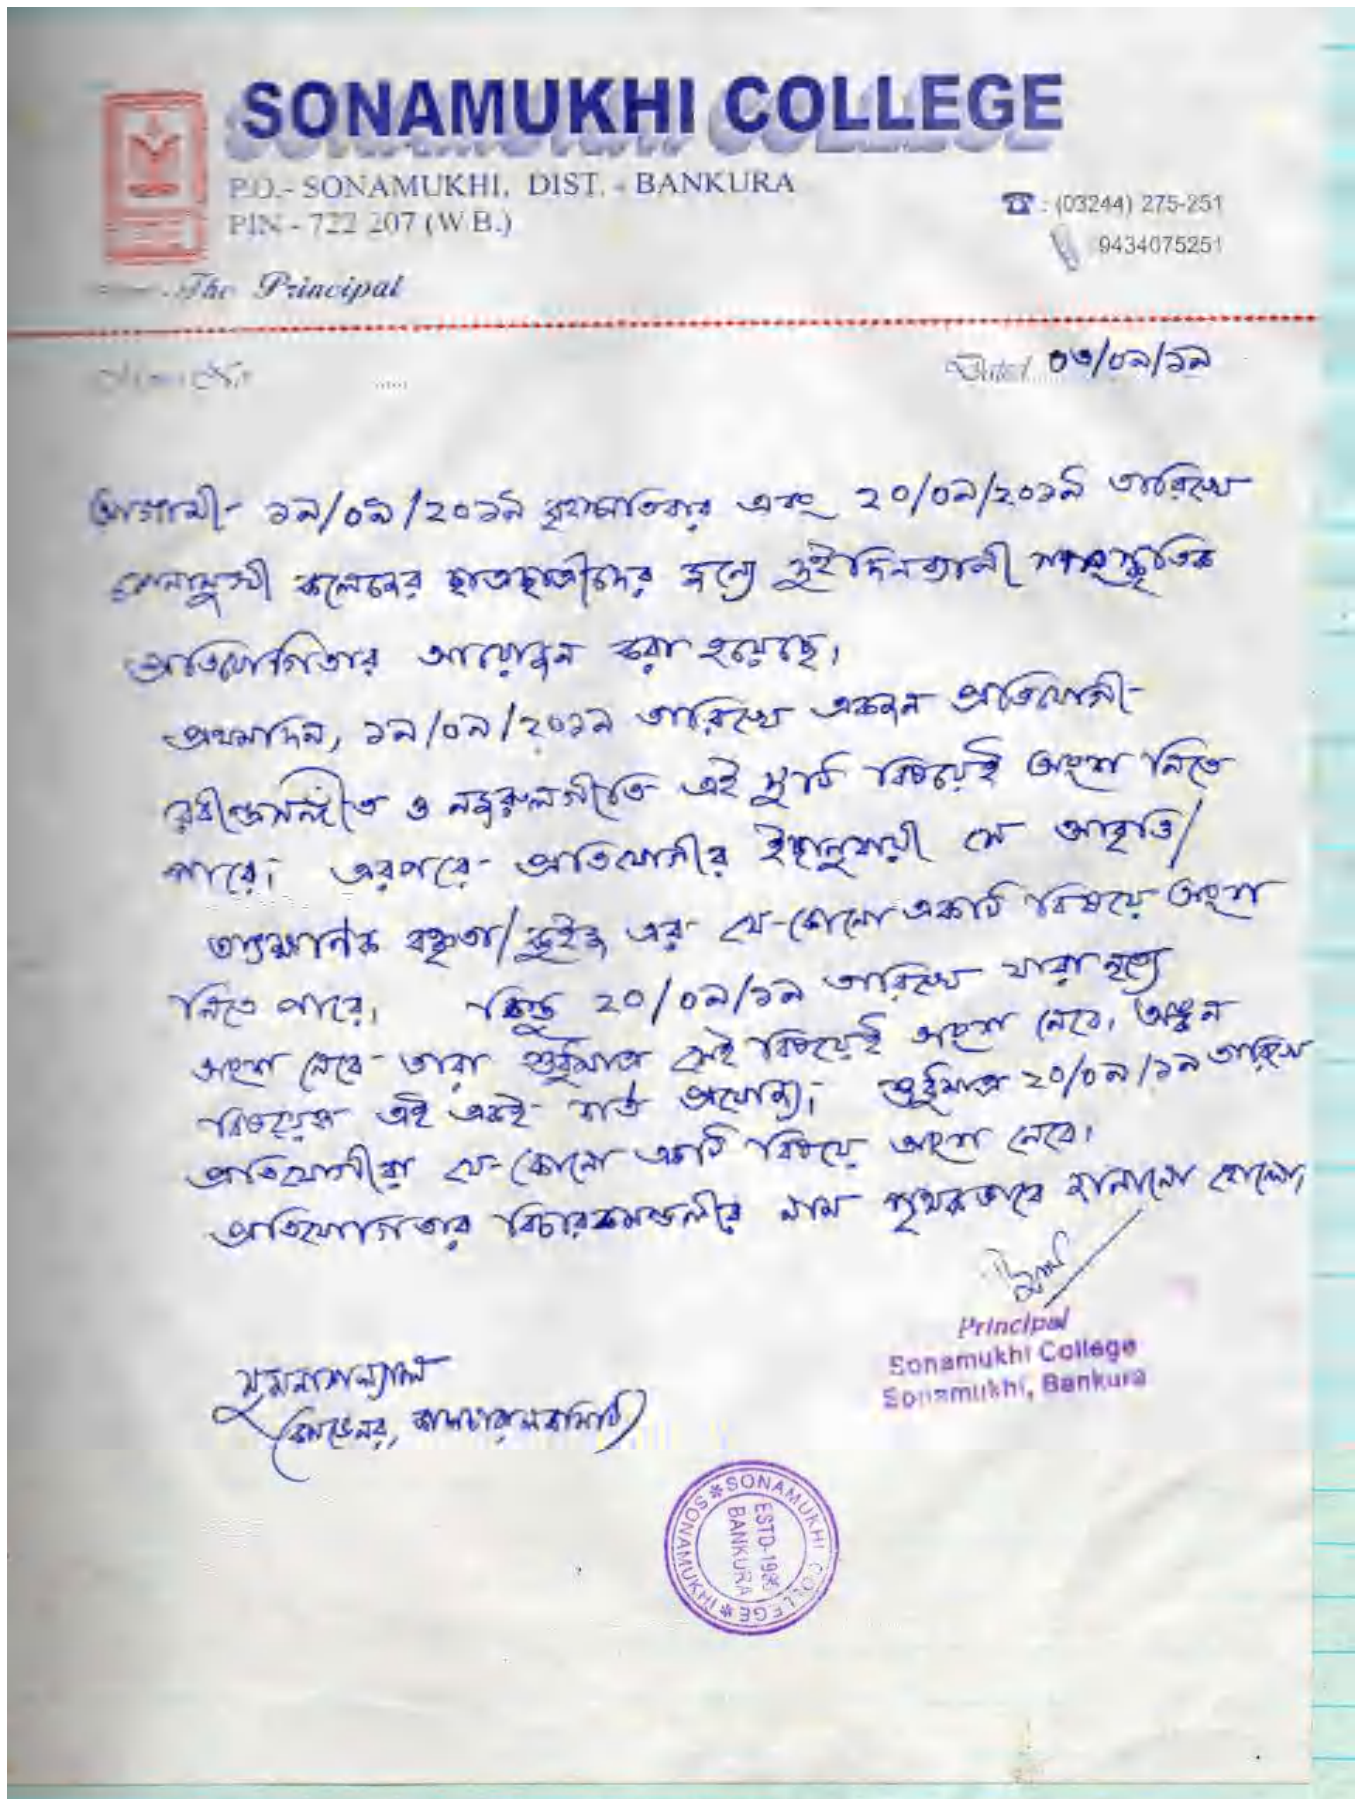 SONAMUKHI COLLEGE
P.O.- SONAMUKHI, DIST. - BANKURA
PIN - 722 207 (W.B.)
☎ : (03244) 275-251
9434075251
The Principal
Dated ০৩/০৯/১৯
আগামী- ১৯/০৯/২০১৯ বৃহস্পতিবার এবং ২০/০৯/২০১৯ তারিখে
সোনামুখী কলেজের ছাত্রছাত্রীদের জন্যে দুইদিনব্যাপী সাংস্কৃতিক
প্রতিযোগিতার আয়োজন করা হয়েছে।
প্রথমদিন, ১৯/০৯/২০১৯ তারিখে একজন প্রতিযোগী-
রবীন্দ্রসঙ্গীত ও নজরুলগীতি এই দুটি বিষয়েই অংশ নিতে
পারে। এরপরে- প্রতিযোগীর ইচ্ছানুযায়ী সে আবৃত্তি/
তাৎক্ষণিক বক্তৃতা/কুইজ এর যে-কোনো একটি বিষয়ে অংশ
নিতে পারে। কিন্তু ২০/০৯/১৯ তারিখে যারা নৃত্যে
অংশ নেবে- তারা শুধুমাত্র সেই বিষয়েই অংশ নেবে। অঙ্কন
বিষয়েও এই একই- শর্ত প্রযোজ্য। শুধুমাত্র ২০/০৯/১৯ তারিখে
প্রতিযোগীরা যে-কোনো একটি বিষয়ে অংশ নেবে।
প্রতিযোগিতার বিচারকমন্ডলীর নাম পৃথকভাবে জানানো হোলো।
Principal
Sonamukhi College
Sonamukhi, Bankura
(কনভেনর, কালচারাল কমিটি)
SONAMUKHI COLLEGE * SONAMUKHI *
ESTD-1966
BANKURA